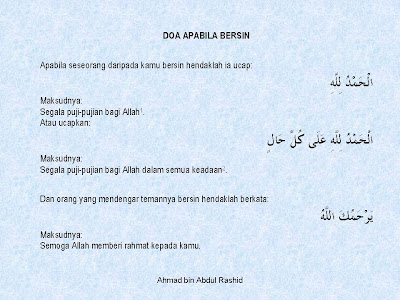 DOA APABILA BERSIN
Apabila seseorang daripada kamu bersin hendaklah ia ucap:
الْحَمْدُ لِلَّهِ
Maksudnya:
Segala puji-pujian bagi Allah¹.
Atau ucapkan:
الْحَمْدُ لِلَّهِ عَلَى كُلِّ حَالٍ
Maksudnya:
Segala puji-pujian bagi Allah dalam semua keadaan².
Dan orang yang mendengar temannya bersin hendaklah berkata:
يَرْحَمُكَ اللَّهُ
Maksudnya:
Semoga Allah memberi rahmat kepada kamu.
Ahmad bin Abdul Rashid